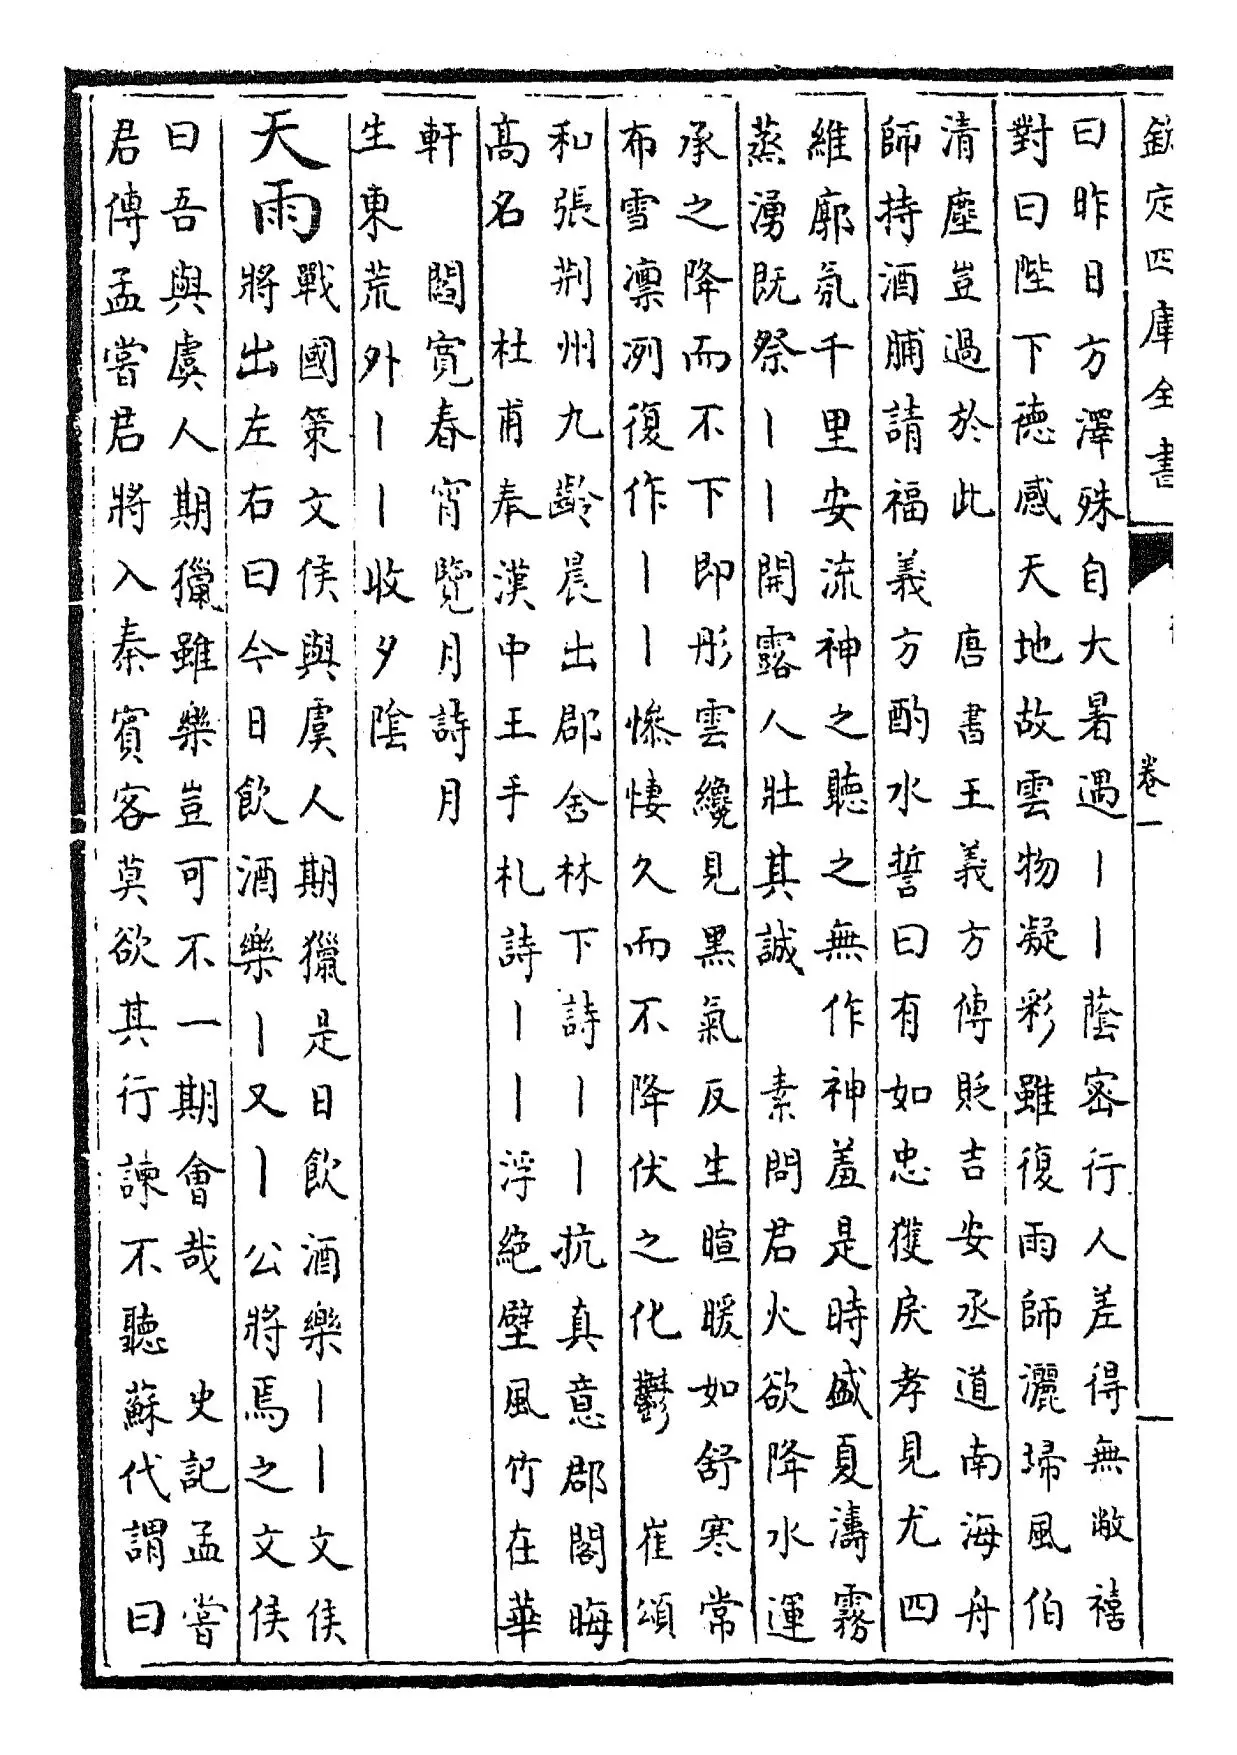 欽定四庫全書
卷一
曰昨日方澤殊自大暑遇丨丨蔭密行人差得無敝禧
對曰陛下德感天地故雲物凝彩雖復雨師灑埽風伯
清塵豈過於此　唐書王義方傳貶吉安丞道南海舟
師持酒脯請福義方酌水誓曰有如忠獲戾孝見尤四
維廓氛千里安流神之聽之無作神羞是時盛夏濤霧
蒸湧既祭丨丨開露人壯其誠　素問君火欲降水運
承之降而不下即彤雲纔見黑氣反生暄暖如舒寒常
布雪凛冽復作丨丨慘悽久而不降伏之化鬱　崔頌
和張荆州九齡晨出郡舍林下詩丨丨抗真意郡閣晦
高名　杜甫奉漢中王手札詩丨丨浮絶壁風竹在華
軒　閻寛春宵覽月詩月
生東荒外丨丨收夕陰
天雨
戰國策文侯與虞人期獵是日飲酒樂丨丨文侯
將出左右曰今日飲酒樂丨又丨公將焉之文侯
曰吾與虞人期獵雖樂豈可不一期會哉　史記孟嘗
君傳孟嘗君將入秦賓客莫欲其行諫不聽蘇代謂曰